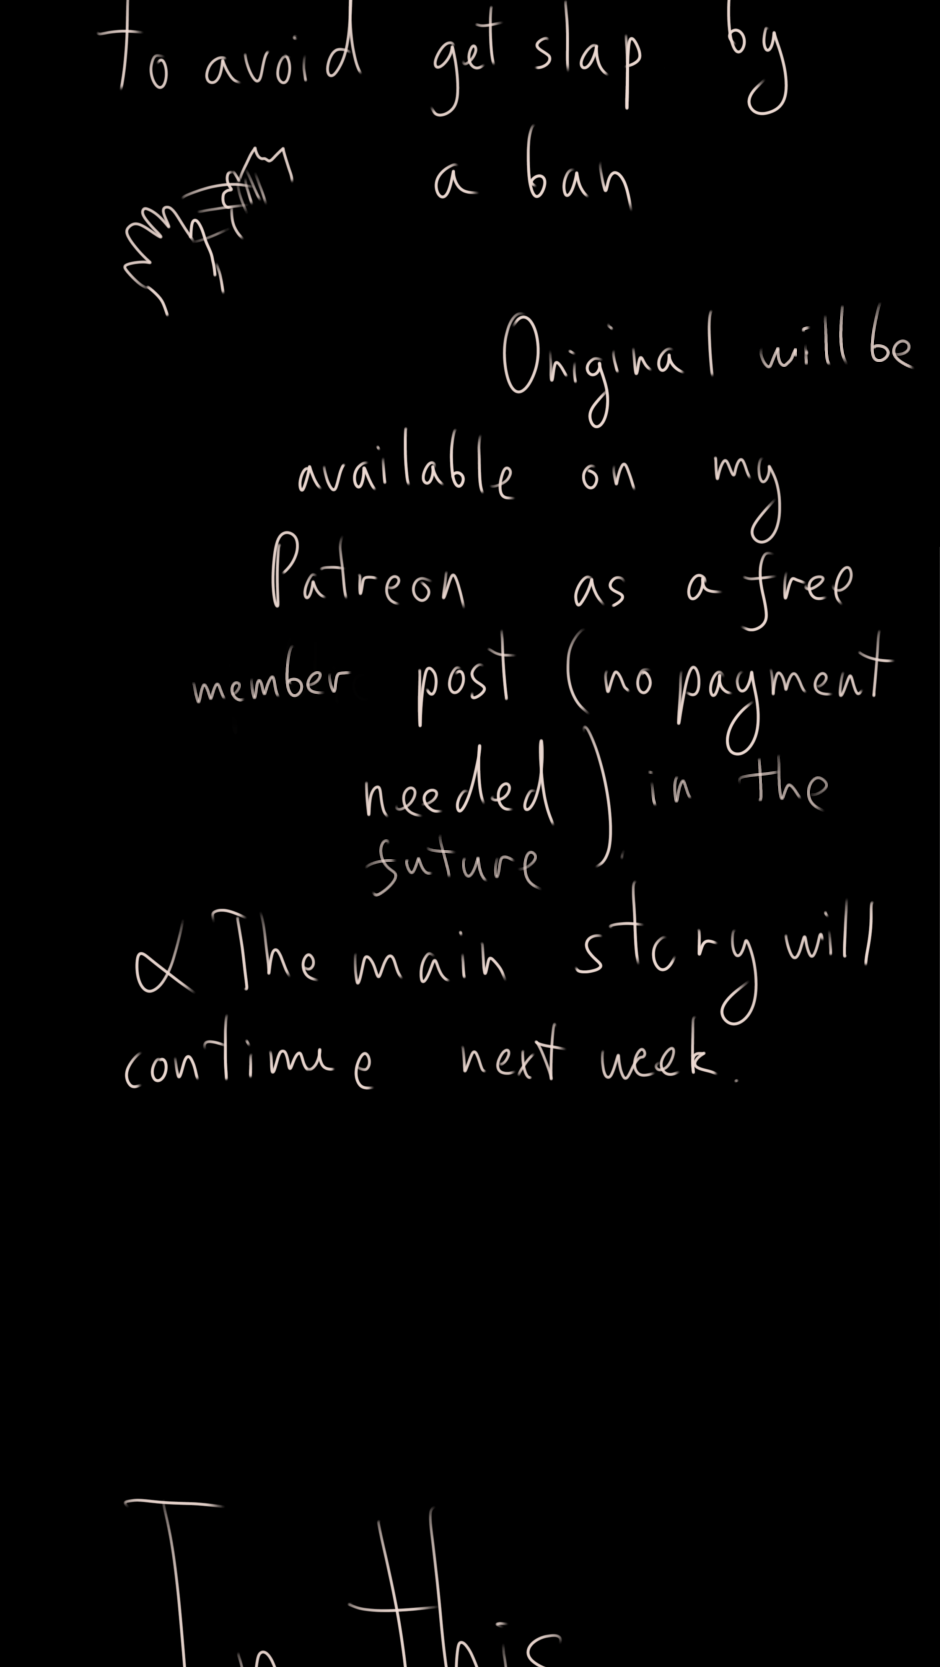 to avoid get slap by
a ban
Original will be
available on my
Patreon as a free
member post (no payment
needed) in the
future.
& The main story will
continue next week.
In this